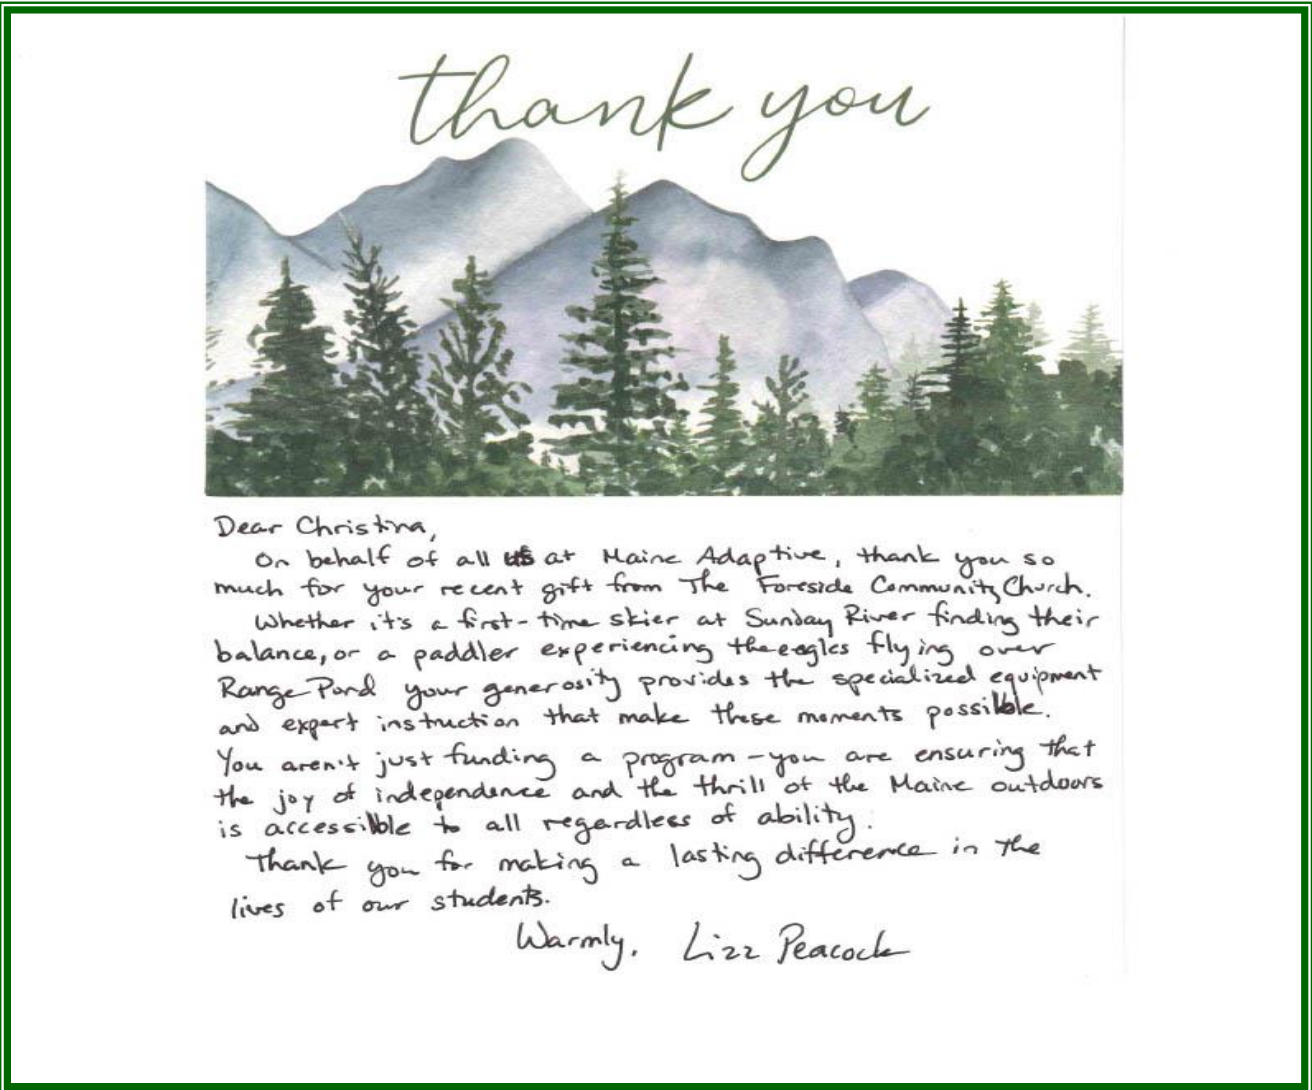 thank you
Dear Christina,
On behalf of all us at Maine Adaptive, thank you so
much for your recent gift from The Foreside Community Church.
Whether it's a first-time skier at Sunday River finding their
balance, or a paddler experiencing the eagles flying over
Range Pond your generosity provides the specialized equipment
and expert instruction that make these moments possible.
You aren't just funding a program - you are ensuring that
the joy of independence and the thrill of the Maine outdoors
is accessible to all regardless of ability.
Thank you for making a lasting difference in the
lives of our students.
Warmly, Lizz Peacock